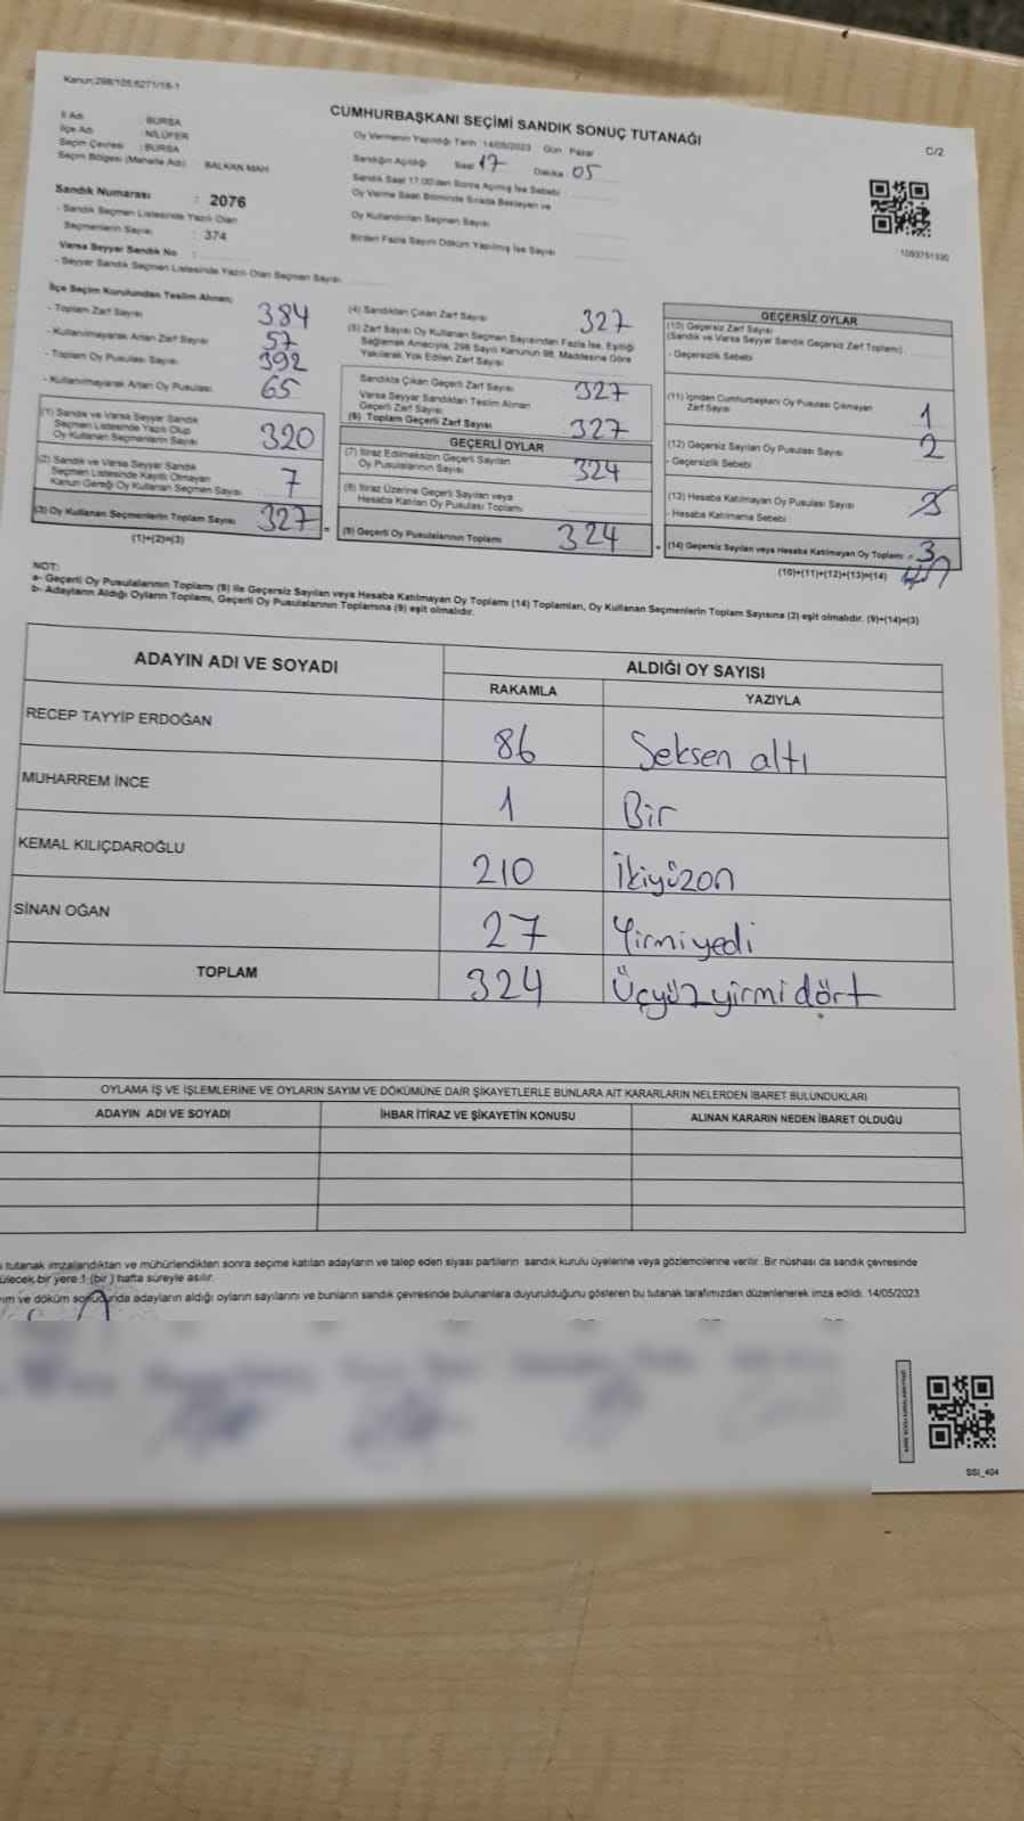 Kanun:298/105,6271/16-1
CUMHURBAŞKANI SEÇİMİ SANDIK SONUÇ TUTANAĞI
C/2
İl Adı : BURSA
İlçe Adı : NİLÜFER
Seçim Çevresi : BURSA
Seçim Bölgesi (Mahalle Adı) BALKAN MAH
Oy Vermenin Yapıldığı Tarih 14/05/2023 Gün Pazar
Sandığın Açıldığı Saat 17 Dakika 05
Sandık Saat 17:00'den Sonra Açılmış İse Sebebi
Oy Verme Saati Bitiminde Sırada Bekleyen ve
Oy Kullandırılan Seçmen Sayısı
Birden Fazla Sayım Döküm Yapılmış İse Sayısı
Sandık Numarası : 2076
- Sandık Seçmen Listesinde Yazılı Olan
Seçmenlerin Sayısı : 374
Varsa Seyyar Sandık No :
- Seyyar Sandık Seçmen Listesinde Yazılı Olan Seçmen Sayısı
İlçe Seçim Kurulundan Teslim Alınan;
- Toplam Zarf Sayısı 384
- Kullanılmayarak Artan Zarf Sayısı 57
- Toplam Oy Pusulası Sayısı 392
- Kullanılmayarak Artan Oy Pusulası 65
(1) Sandık ve Varsa Seyyar Sandık
Seçmen Listesinde Yazılı Olup
Oy Kullanan Seçmenlerin Sayısı 320
(2) Sandık ve Varsa Seyyar Sandık
Seçmen Listesinde Kayıtlı Olmayan
Kanun Gereği Oy Kullanan Seçmen Sayısı 7
(3) Oy Kullanan Seçmenlerin Toplam Sayısı 327
(1)+(2)=(3)
(4) Sandıktan Çıkan Zarf Sayısı 327
(5) Zarf Sayısı Oy Kullanan Seçmen Sayısından Fazla İse, Eşitliği
Sağlamak Amacıyla, 298 Sayılı Kanunun 98. Maddesine Göre
Yakılarak Yok Edilen Zarf Sayısı
Sandıkta Çıkan Geçerli Zarf Sayısı 327
Varsa Seyyar Sandıktan Teslim Alınan
Geçerli Zarf Sayısı
(6) Toplam Geçerli Zarf Sayısı 327
GEÇERLİ OYLAR
(7) İtiraz Edilmeksizin Geçerli Sayılan
Oy Pusulalarının Sayısı 324
(8) İtiraz Üzerine Geçerli Sayılan veya
Hesaba Katılan Oy Pusulası Toplamı
(9) Geçerli Oy Pusulalarının Toplamı 324
GEÇERSİZ OYLAR
(10) Geçersiz Zarf Sayısı
(Sandık ve Varsa Seyyar Sandık Geçersiz Zarf Toplamı)
- Geçersizlik Sebebi
(11) İçinden Cumhurbaşkanı Oy Pusulası Çıkmayan
Zarf Sayısı 1
(12) Geçersiz Sayılan Oy Pusulası Sayısı 2
- Geçersizlik Sebebi
(13) Hesaba Katılmayan Oy Pusulası Sayısı
- Hesaba Katılmama Sebebi
(14) Geçersiz Sayılan veya Hesaba Katılmayan Oy Toplamı = 3
(10)+(11)+(12)+(13)=(14)
NOT:
a- Geçerli Oy Pusulalarının Toplamı (9) ile Geçersiz Sayılan veya Hesaba Katılmayan Oy Toplamı (14) Toplamları, Oy Kullanan Seçmenlerin Toplam Sayısına (3) eşit olmalıdır. (9)+(14)=(3)
b- Adayların Aldığı Oyların Toplamı, Geçerli Oy Pusulalarının Toplamına (9) eşit olmalıdır.
ADAYIN ADI VE SOYADI ALDIĞI OY SAYISI
RAKAMLA YAZIYLA
RECEP TAYYİP ERDOĞAN 86 Seksen altı
MUHARREM İNCE 1 Bir
KEMAL KILIÇDAROĞLU 210 İkiyüzon
SİNAN OĞAN 27 Yirmiyedi
TOPLAM 324 Üçyüzyirmidört
OYLAMA İŞ VE İŞLEMLERİNE VE OYLARIN SAYIM VE DÖKÜMÜNE DAİR ŞİKAYETLERLE BUNLARA AİT KARARLARIN NELERDEN İBARET BULUNDUKLARI
ADAYIN ADI VE SOYADI İHBAR İTİRAZ VE ŞİKAYETİN KONUSU ALINAN KARARIN NEDEN İBARET OLDUĞU
tutanak imzalandıktan ve mühürlendikten sonra seçime katılan adayların ve talep eden siyasi partilerin sandık kurulu üyelerine veya gözlemcilerine verilir. Bir nüshası da sandık çevresinde
bir yere 1 (bir) hafta süreyle asılır.
ve döküm sonucunda adayların aldığı oyların sayılarını ve bunların sandık çevresinde bulunanlara duyurulduğunu gösteren bu tutanak tarafımızdan düzenlenerek imza edildi. 14/05/2023
SSI_404